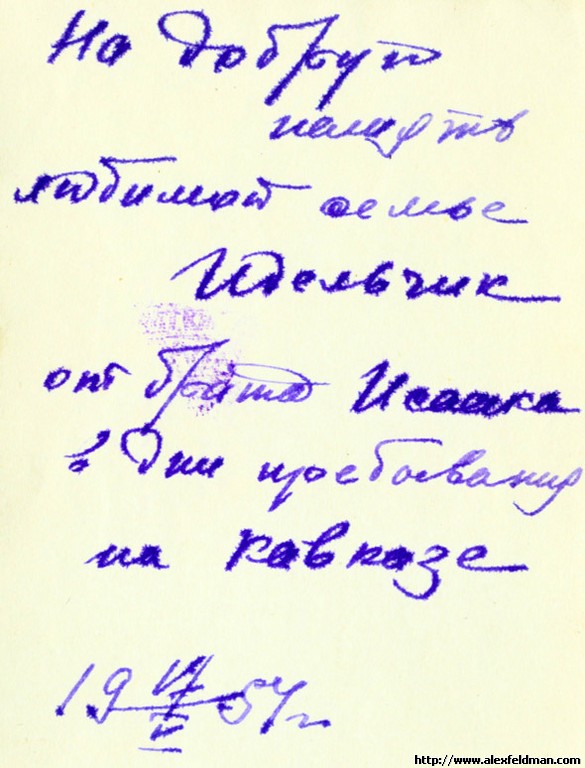 На добрую
память
любимой семье
Идельчик
от брата Исаака
в дни пребывания
на Кавказе
http://www.alexfeldman.com